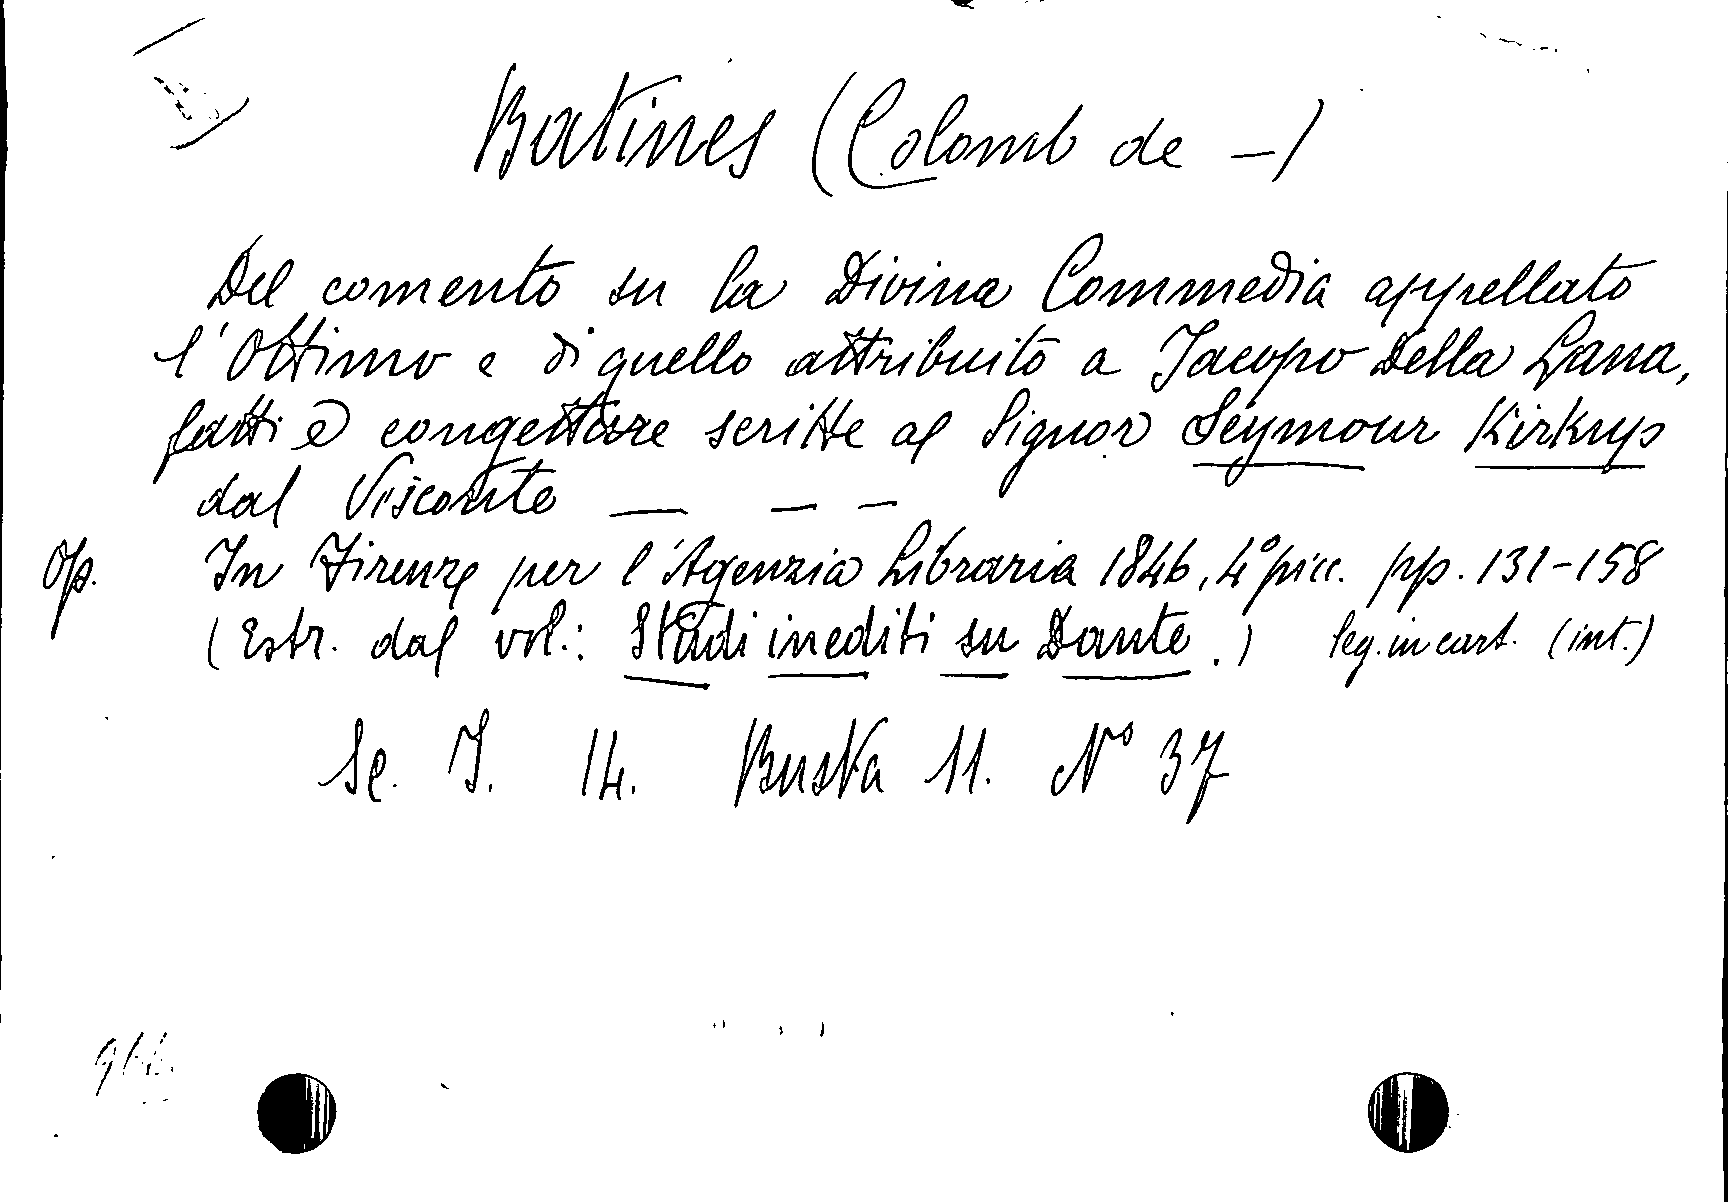 Batines (Colomb de —)
Del comento su la Divina Commedia appellato
l'Ottimo e di quello attribuito a Jacopo Della Lana,
fatti e congetture scritte al Signor Seymour Kirkup
dal Visconte — — —
Op. In Firenze per l'Agenzia Libraria 1846, 4° picc. pp. 131-158
(Estr. dal vol.: Studi inediti su Dante.) leg. in cart. (int.)
Sc. I. 14. Busta 11. N° 37